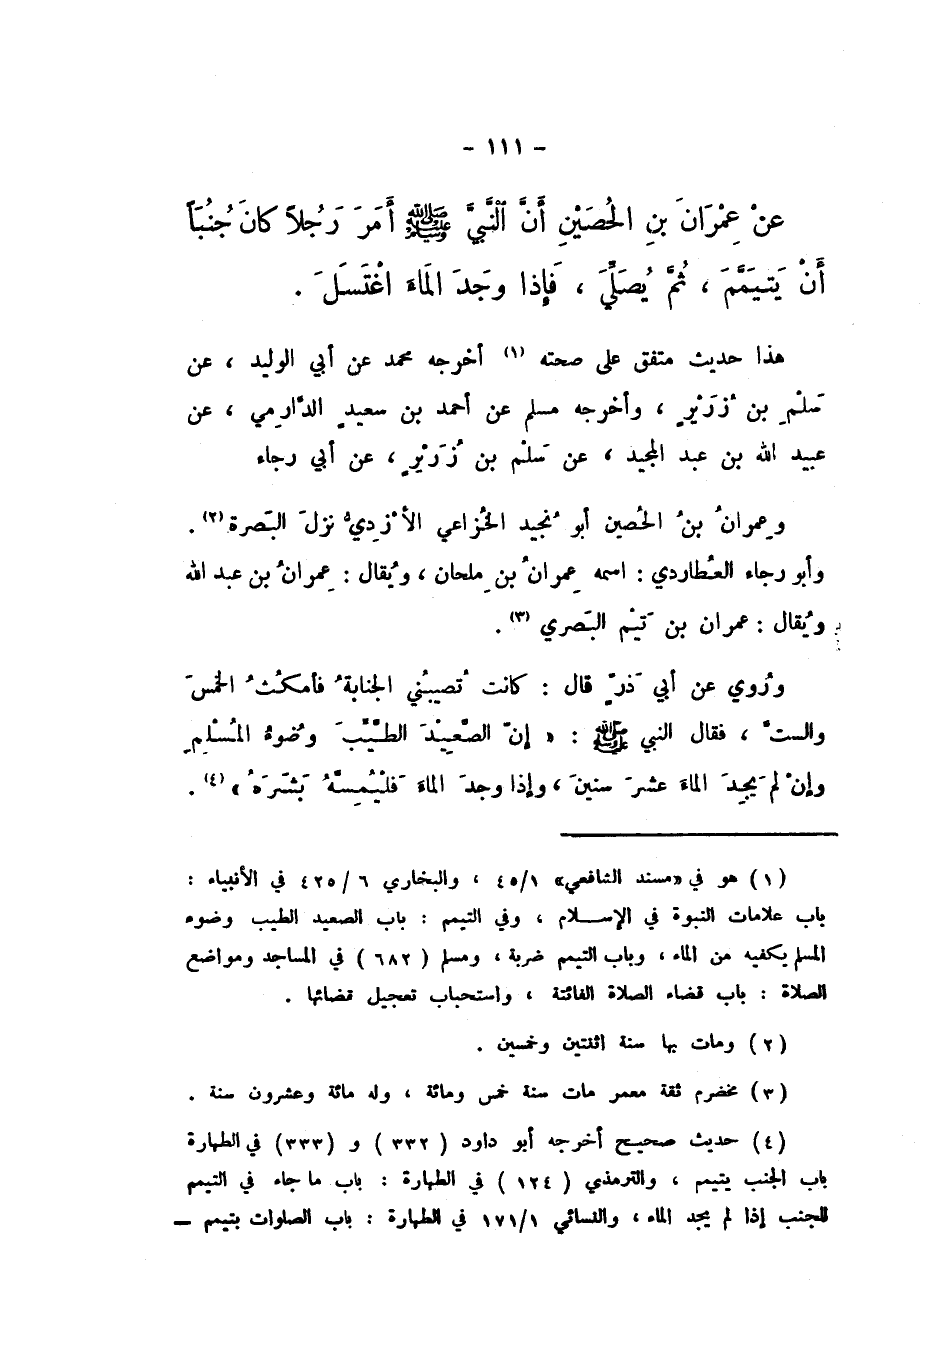 - ١١١ -
عنْ عِمْرَانَ بنِ الحُصَيْنِ أَنَّ النَّبيَّ ﷺ أَمَرَ رَجُلاً كانَ جُنُبَاً
أَنْ يَتيَمَّمَ ، ثُمَّ يُصَلِّيَ ، فَإذا وجَدَ المَاءَ اغْتَسَلَ .
هذا حديث متفق على صحته (١) أخرجه محمد عن أبي الوليد ، عن
سَلْمِ بن زُرَيْرٍ ، وأخرجه مسلم عن أحمد بن سعيدٍ الدَّارِمي ، عن
عبيد الله بن عبد المجيد ، عن سَلْم بن زُرَيْرٍ ، عن أبي رجاء
وعِمرانُ بنُ الحُصين أبو نُجيد الخُزاعي الأزْدِيُّ نزلَ البَصرة (٢) .
وأبو رجاء العُطاردي : اسمه عِمرانُ بن مِلحان ، ويُقال : عِمرانُ بن عبد الله
ويُقال : عمران بن تَيْم البَصري (٣) .
ورُوي عن أبي ذَرٍّ قال : كانت تُصيبُني الجنابةُ فأمكُثُ الخمسَ
والستَّ ، فقال النبي ﷺ : « إنّ الصَّعِيْدَ الطَّيِّبَ وضُوءُ المُسْلِمِ
وإنْ لم يَجِدَ الماءَ عشرَ سنينَ ، وإذا وجدَ الماءَ فَلْيُمِسَّهُ بَشَرَهُ » (٤) .
(١) هو في «مسند الشافعي» ٤٥/١ ، والبخاري ٦ / ٤٢٥ في الأنبياء :
باب علامات النبوة في الإسـلام ، وفي التيمم : باب الصعيد الطيب وضوء
المسلم يكفيه من الماء ، وباب التيمم ضربة ، ومسلم ( ٦٨٢ ) في المساجد ومواضع
الصلاة : باب قضاء الصلاة الفائتة ، واستحباب تعجيل قضائها .
(٢) ومات بها سنة اثنتين وخمسين .
(٣) مخضرم ثقة معمر مات سنة خمس ومائة ، وله مائة وعشرون سنة .
(٤) حديث صحيح أخرجه أبو داود ( ٣٣٢ ) و (٣٣٣) في الطهارة
باب الجنب يتيمم ، والترمذي ( ١٢٤ ) في الطهارة : باب ما جاء في التيمم
للجنب إذا لم يجد الماء ، والنسائي ١٧١/١ في الطهارة : باب الصلوات بتيمم –